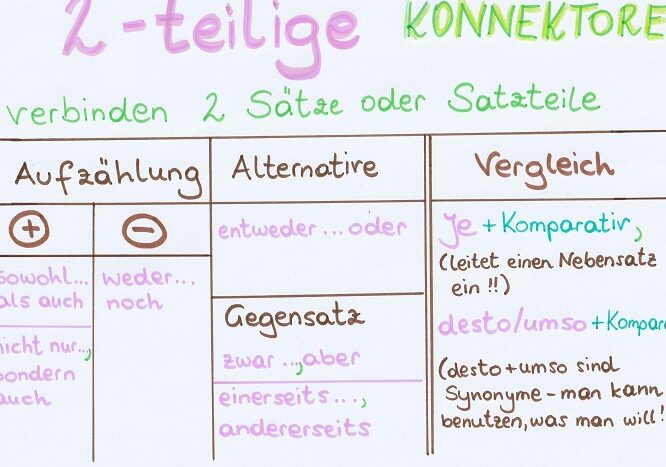 2-teilige KONNEKTORE
verbinden 2 Sätze oder Satzteile
Aufzählung
+
-
sowohl...
als auch
nicht nur..,
sondern
auch
weder...
noch
Alternative
entweder...oder
Gegensatz
zwar ..,aber
einerseits...,
andererseits
Vergleich
Je +Komparativ,
(leitet einen Nebensatz
ein !!)
desto/umso +Kompara
(desto+umso sind
Synonyme - man kann
benutzen, was man will!